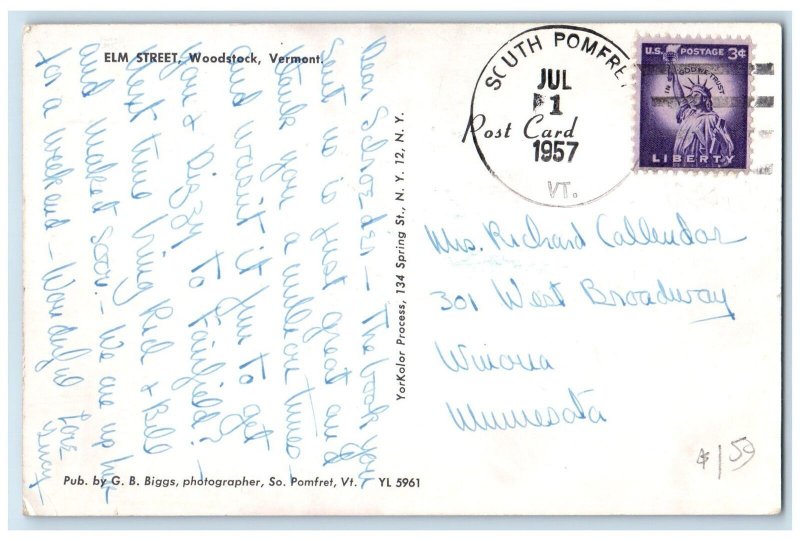 ELM STREET, Woodstock, Vermont.
Dear Schroeder — The book you
sent us is just great and
thank you a million times —
and wasn't it fun to get
you & Diggy to Fairfield? —
Next time bring Red & Bill
and make it soon. — We are up here
for a weekend — Wonderful
Love
YorKolor Process, 134 Spring St., N. Y. 12, N. Y.
Pub. by G. B. Biggs, photographer, So. Pomfret, Vt. YL 5961
SOUTH POMFRET
JUL
1
1957
VT.
Post Card
U.S. POSTAGE 3¢
IN GOD WE TRUST
LIBERTY
Mrs. Richard Callender
301 West Broadway
Winona
Minnesota